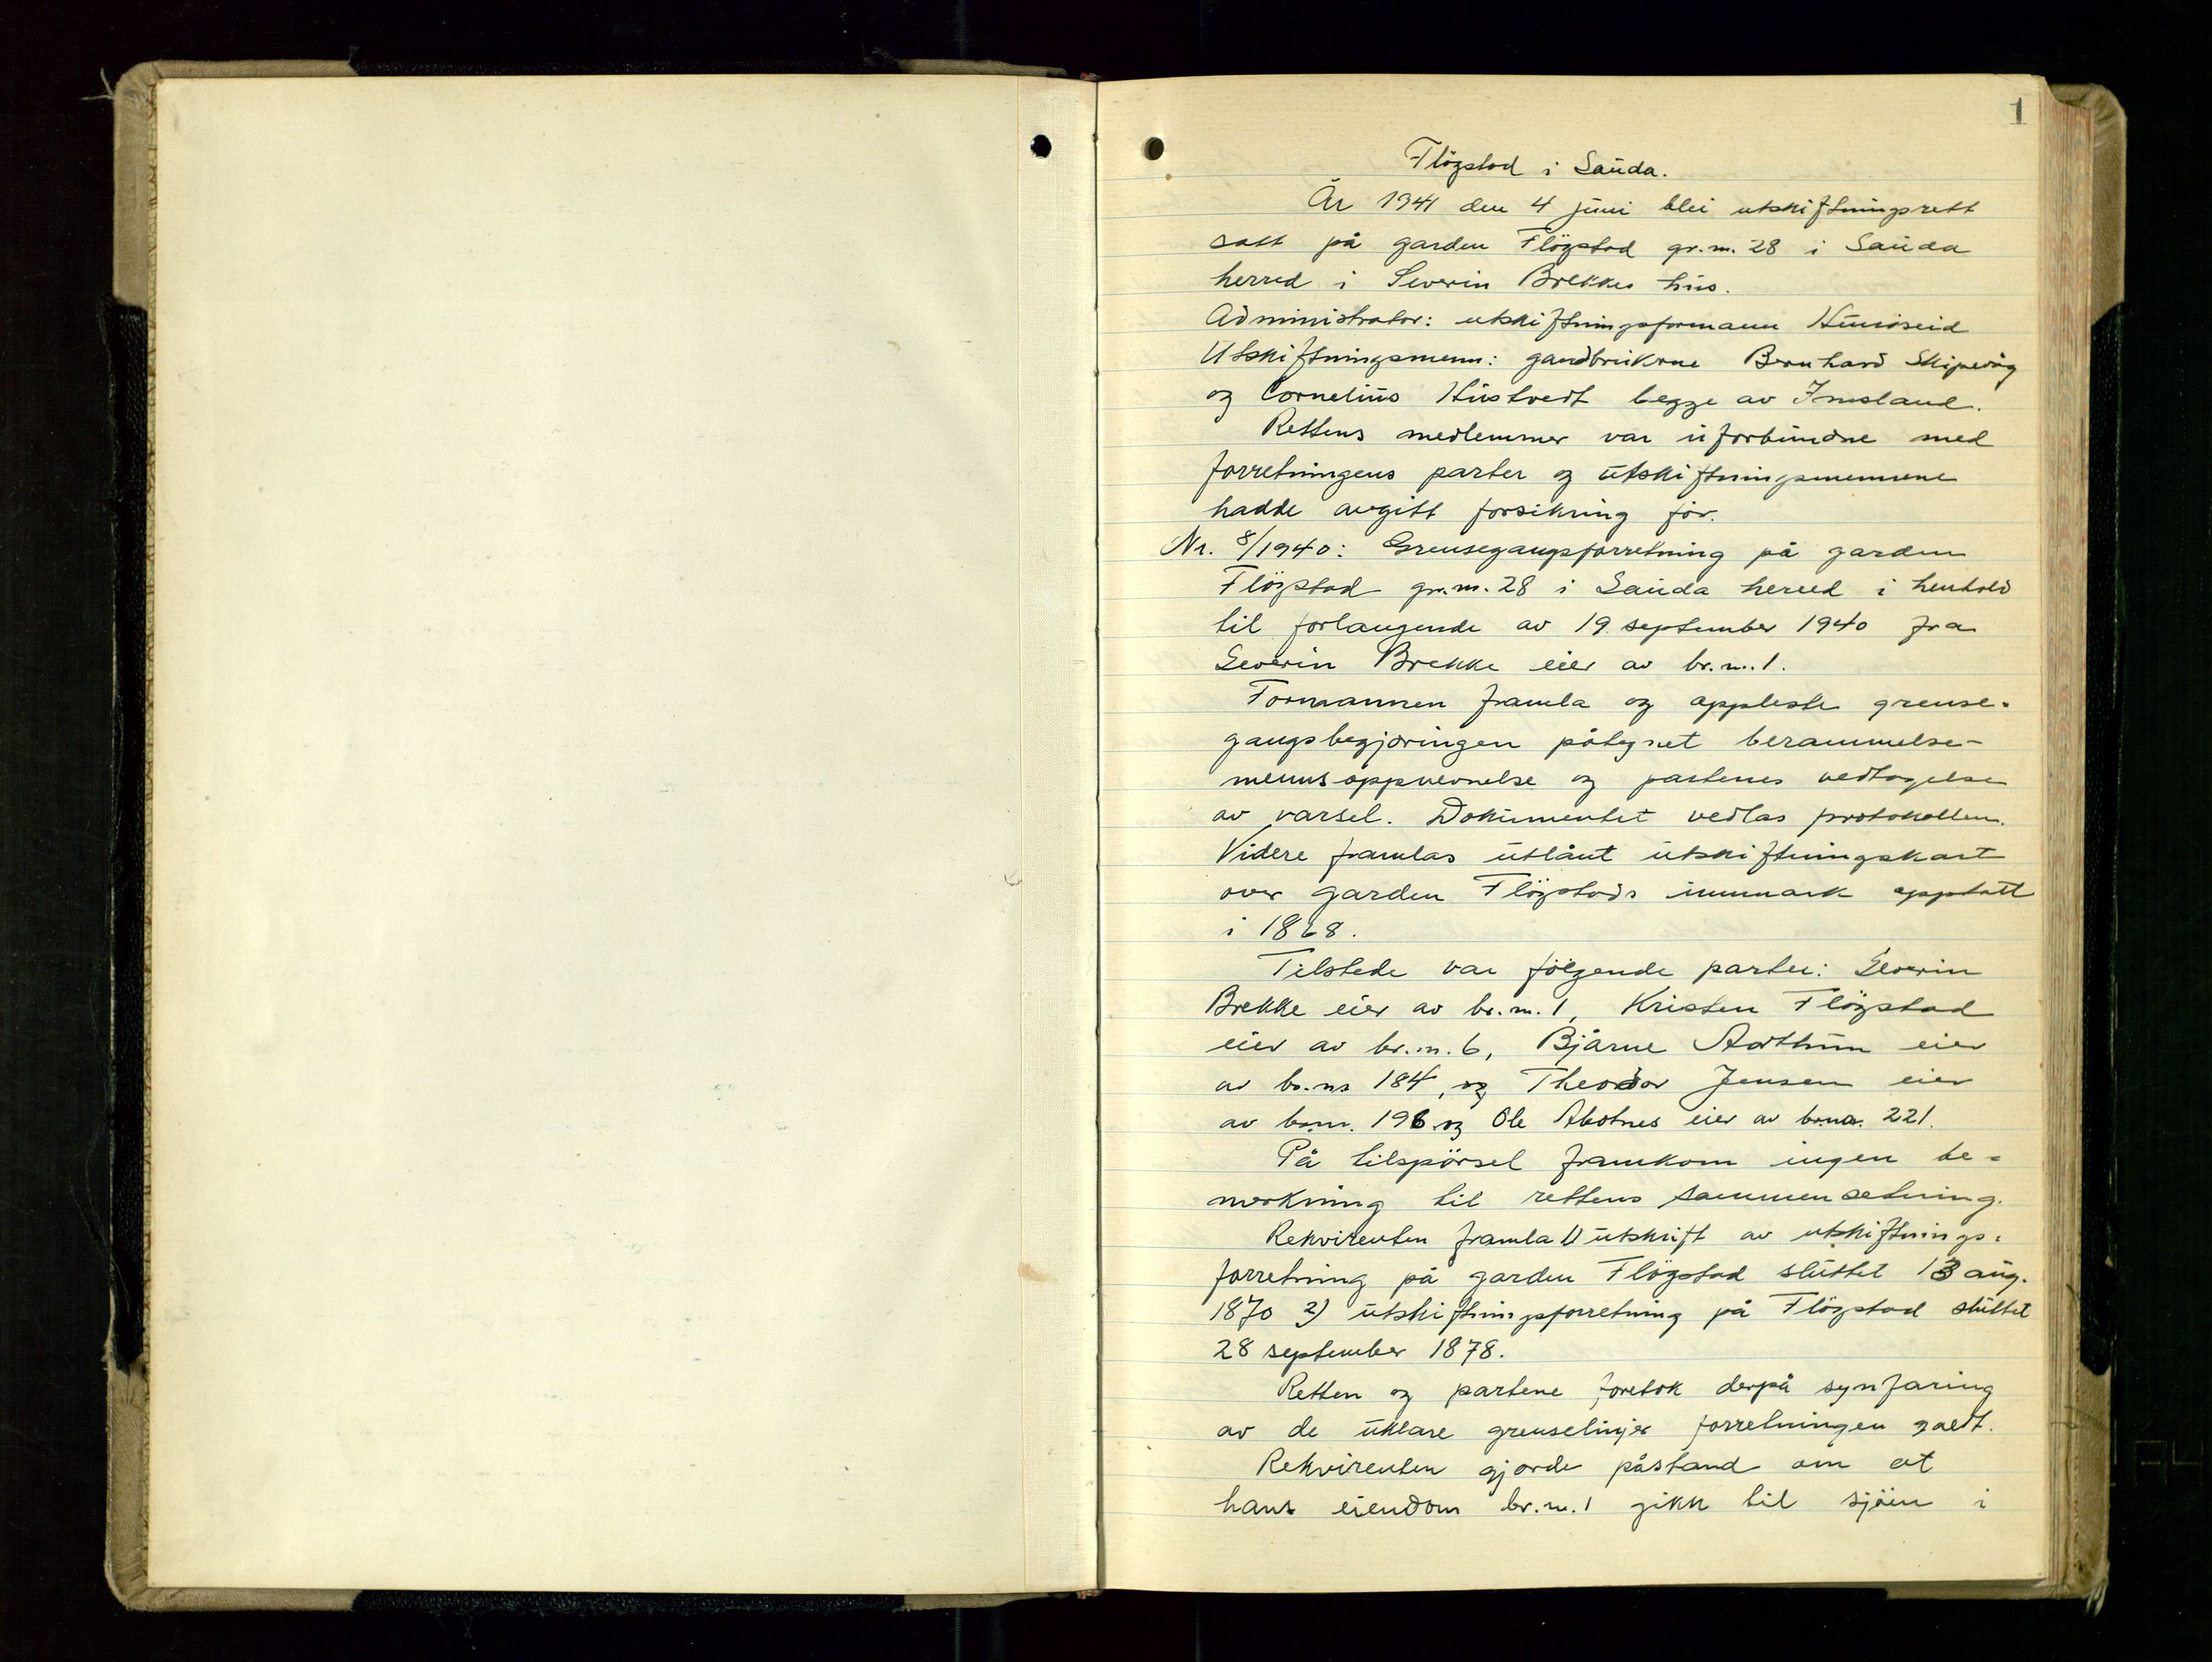 1
Flögstad i Sauda.
År 1941 den 4 juni blei utskiftningsrett
satt på garden Flögstad gr.nr. 28 i Sauda
herred i Severin Brekkes hus.
Administrator: utskiftningsformann
Utskiftningsmenn: gardbrukerne Bernhard Skipevåg
og Cornelius Hustvedt begge av Imsland.
Rettens medlemmer var uforbundne med
forretningens parter og utskiftningsmennene
hadde avgitt forsikring før.
Nr. 8/1940: Grensegangsforretning på garden
Flögstad gr.nr. 28 i Sauda herred i henhold
til forlangende av 19 september 1940 fra
Severin Brekke eier av br.nr. 1.
Formannen framla og oppleste grense-
gangsbegjæringen påtegnet berammelse-
mennsoppnevnelse og partenes vedtagelse
av varsel. Dokumentet vedlas protokollen.
Videre framlas utlånt utskiftningskart
over garden Flögstads innmark opptatt
i 1868.
Tilstede var følgende parter: Severin
Brekke eier av br.nr. 1, Kristen Flögstad
eier av br.nr. 6, Bjarne Aarthun eier
av br.nr 184, og Theodor Jensen eier
av br.nr. 196 og Ole eier av br.nr. 221.
På tilspörsel framkom ingen be-
merkning til rettens sammensetning.
Rekvirenten framla 1) utskrift av utskiftnings-
forretning på garden Flögstad sluttet 13 aug.
1870 2) utskiftningsforretning på Flögstad sluttet
28 september 1878.
Retten og partene foretok derpå synfaring
av de uklare grenselinjer forretningen galdt.
Rekvirenten gjorde påstand om at
hans eiendom br.nr. 1 gikk til sjöen i